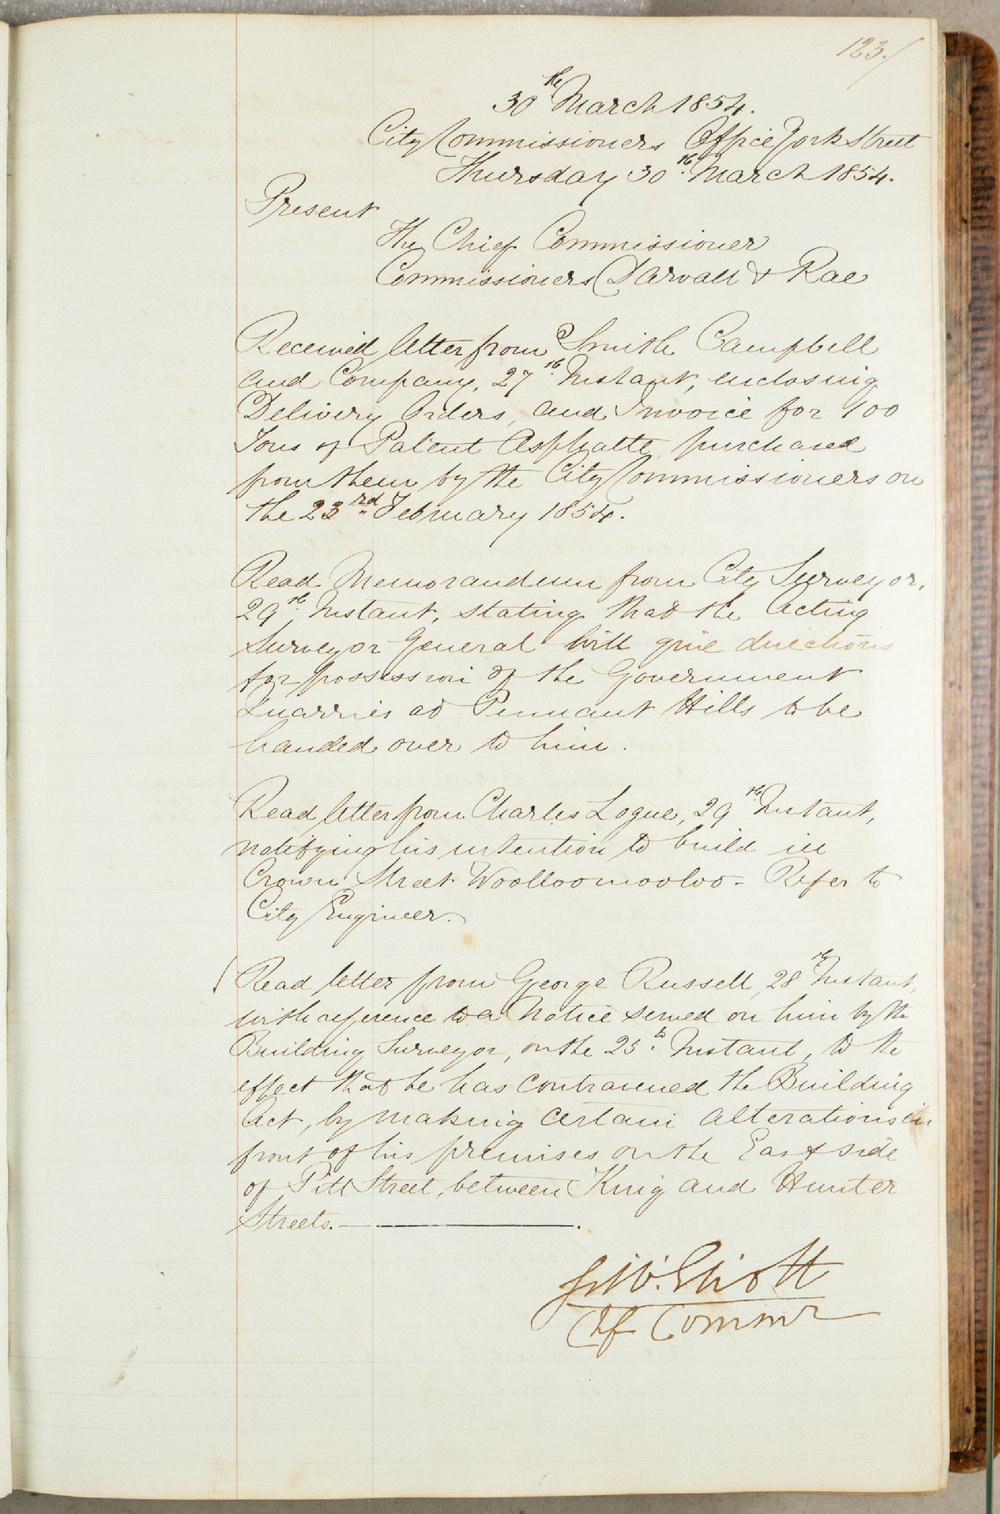 123./
30th March 1854.
City Commissioners Office York Street
Thursday 30th March 1854.
Present
The Chief Commissioner
Commissioners Darvall & Rae
Received letter from Smith Campbell
and Company, 27th Instant, enclosing
Delivery Orders, and Invoice for 100
Tons of Patent Asphalte purchased
from them by the City Commissioners on
the 23rd February 1854.
Read Memorandum from City Surveyor,
29th Instant, stating that the Acting
Surveyor General will give directions
for possession of the Government
Quarries at Pennant Hills to be
handed over to him.
Read letter from Charles Logue, 29th Instant,
notifying his intention to build in
Crown Street Woolloomooloo - Refer to
City Engineer.
Read letter from George Russell, 28th Instant,
with reference to a Notice served on him by the
Building Surveyor, on the 25th Instant, to the
effect that he has contravened the Building
Act, by making certain alterations in
front of his premises on the East side
of Pitt Street, between King and Hunter
Streets.
Elliott
Chf Commr